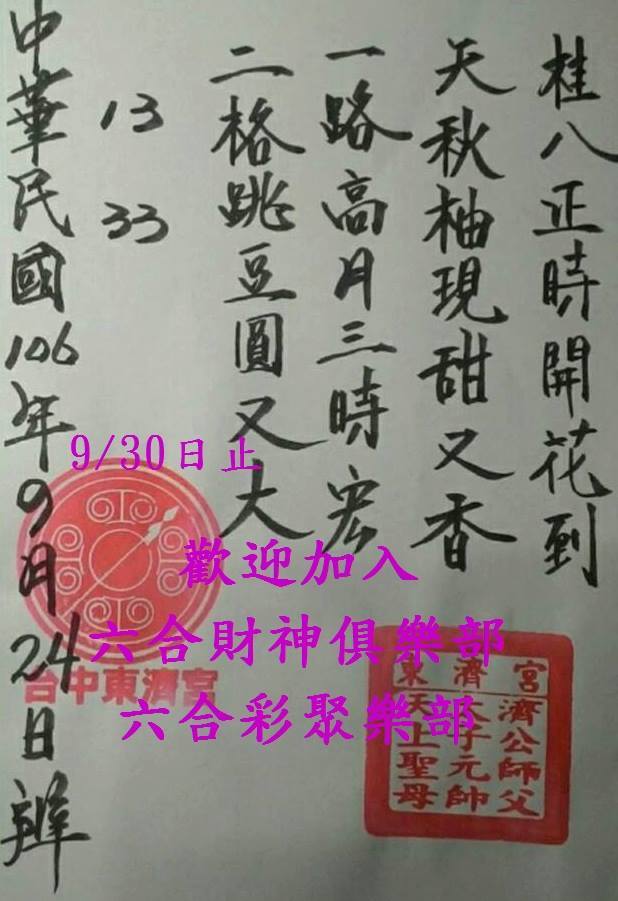 桂八正時開花到
天秋柚現甜又香
一路高月三時宏
二格跳豆圓又大
13 33
中華民國106年9月24日辦
9/30日止
歡迎加入
六合財神俱樂部
六合彩聚樂部
台中東濟宮
東濟宮
濟公師父
太子元帥
天上聖母